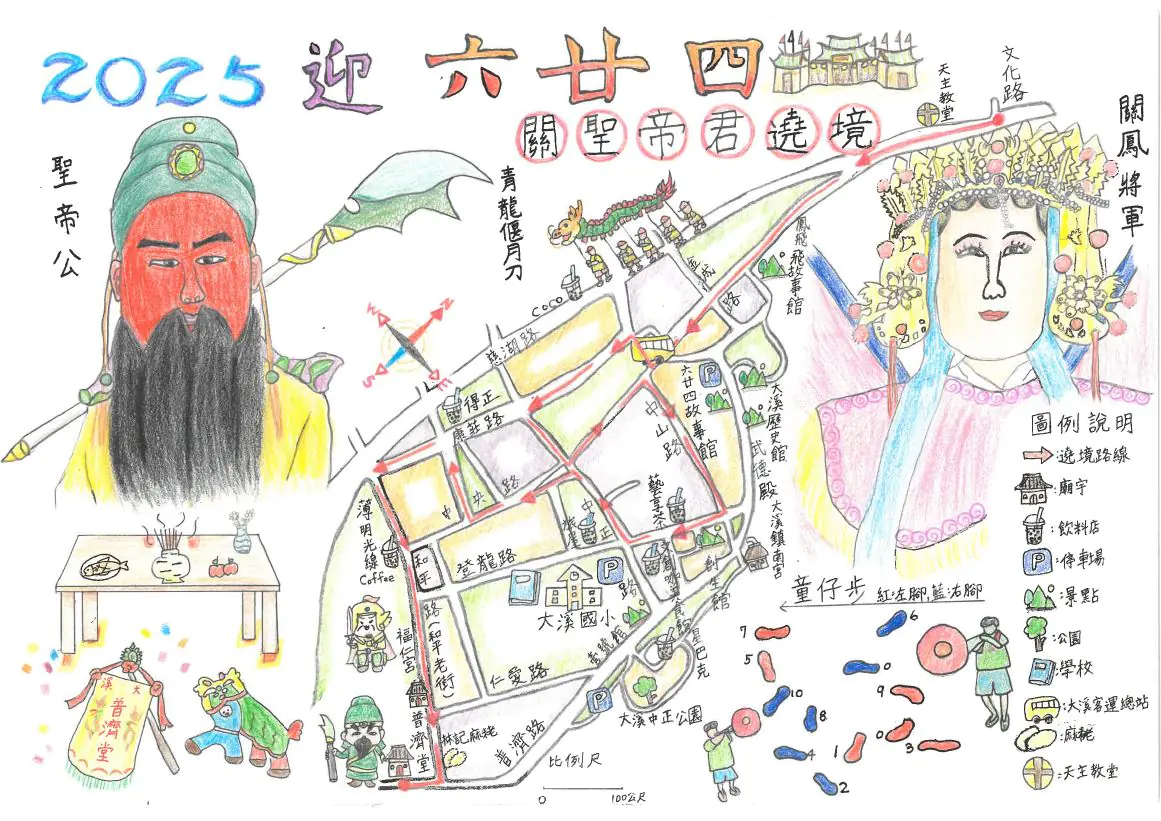 2025 迎 六廿四
關聖帝君遶境
天主教堂
文化路
關鳳將軍
聖帝公
青龍偃月刀
鳳飛飛故事館
COCO
慈湖路
路
得正
康莊路
六廿四故事館
大溪歷史館
中山路
武德殿
圖例說明
:遶境路線
:廟宇
:飲料店
:停車場
:景點
:公園
:學校
:大溪客運總站
:麻粩
:天主教堂
中央路
藝享茶
中正
大溪鎮南宮
薄明光線
Coffee
和平
登龍路
創生館
童仔步 紅:左腳,藍:右腳
大溪國小
路(和平老街)
福仁宮
仁愛路
星巴克
大溪中正公園
普濟堂
林記麻粩
普濟路
比例尺
0 100公尺
大溪
普濟堂
7
5
6
0
9
10
8
4
1
0
3
2
W
N
S
E